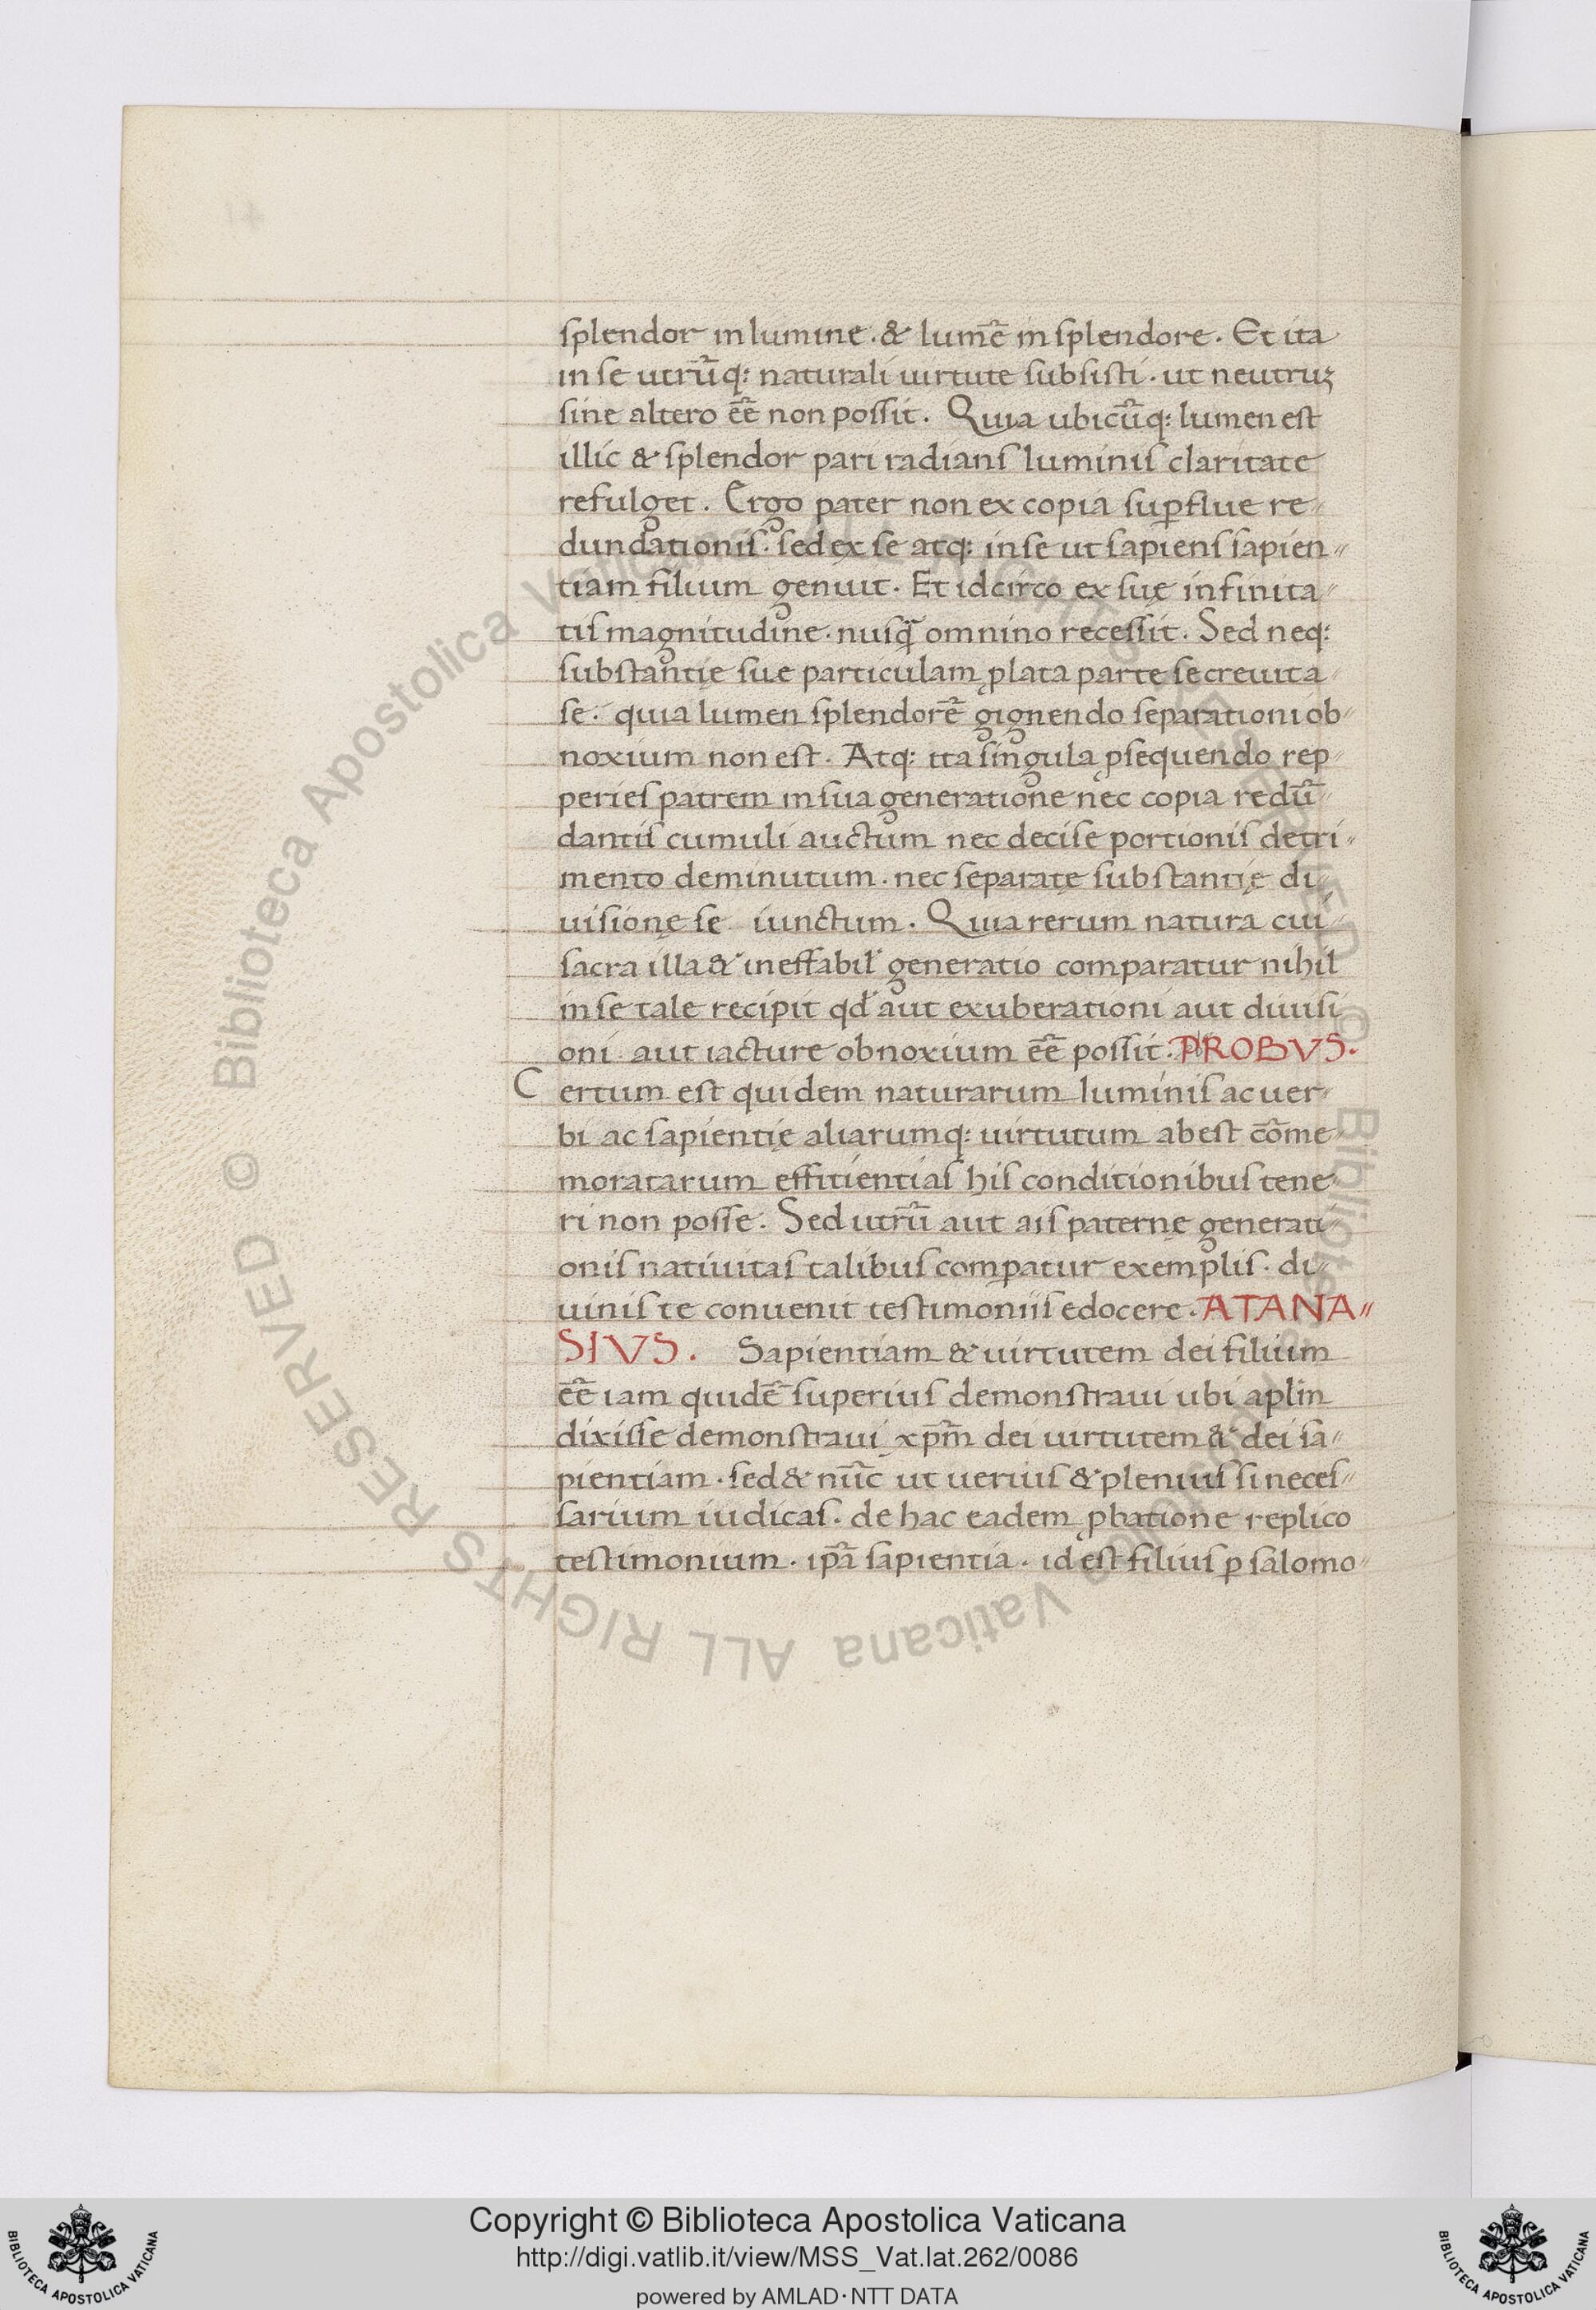 splendor in lumine · & lumē in splendore . Et ita
in se utrūq; naturali uirtute subsisti · ut neutruꝫ
sine altero ēē non possit . Quia ubicūq; lumen est
illic & splendor pari radians luminis claritate
refulget . Ergo pater non ex copia suꝑflue re-
dundationis · sed ex se atq; in se ut sapiens sapien-
tiam filium genuit . Et idcirco ex suę infinita-
tis magnitudine · nusq̄ omnino recessit . Sed neq;
substantię sue particulam ꝓlata parte secreuit a
se · quia lumen splendorē gignendo separationi ob-
noxium non est . Atq; ita singula ꝓsequendo rep-
peries patrem in sua generatione nec copia redū-
dantis cumuli auctum nec decise portionis detri-
mento deminutum · nec separatę substantię di-
uisionę se iunctum . Quia rerum natura cui
sacra illa & ineffabil' generatio comparatur nihil
in se tale recipit qd' aut exuberationi aut diuisi
oni aut iacture obnoxium ēē possit . PROBVS.
Certum est quidem naturarum luminis ac uer-
bi ac sapientię aliarumq; uirtutum abest cōme-
moratarum effitientias his conditionibus tene-
ri non posse . Sed utrū aut ais paternę generati-
onis natiuitas talibus comꝑatur exemplis · di-
uinis te conuenit testimoniis edocere . ATANA-
SIVS . Sapientiam & uirtutem dei filium
ēē iam quidē superius demonstraui ubi aplm
dixisse demonstraui xp̄m dei uirtutem & dei sa-
pientiam · sed & nūc ut uerius & plenius si neces-
sarium iudicas · de hac eadem ꝓbatione replico
testimonium · ip̄a sapientia · id est filius ꝑ salomo-
Biblioteca Apostolica Vaticana ALL RIGHTS RESERVED ©
Biblioteca Apostolica Vaticana ALL RIGHTS RESERVED ©
Copyright © Biblioteca Apostolica Vaticana
http://digi.vatlib.it/view/MSS_Vat.lat.262/0086
powered by AMLAD·NTT DATA
BIBLIOTECA APOSTOLICA VATICANA
BIBLIOTECA APOSTOLICA VATICANA